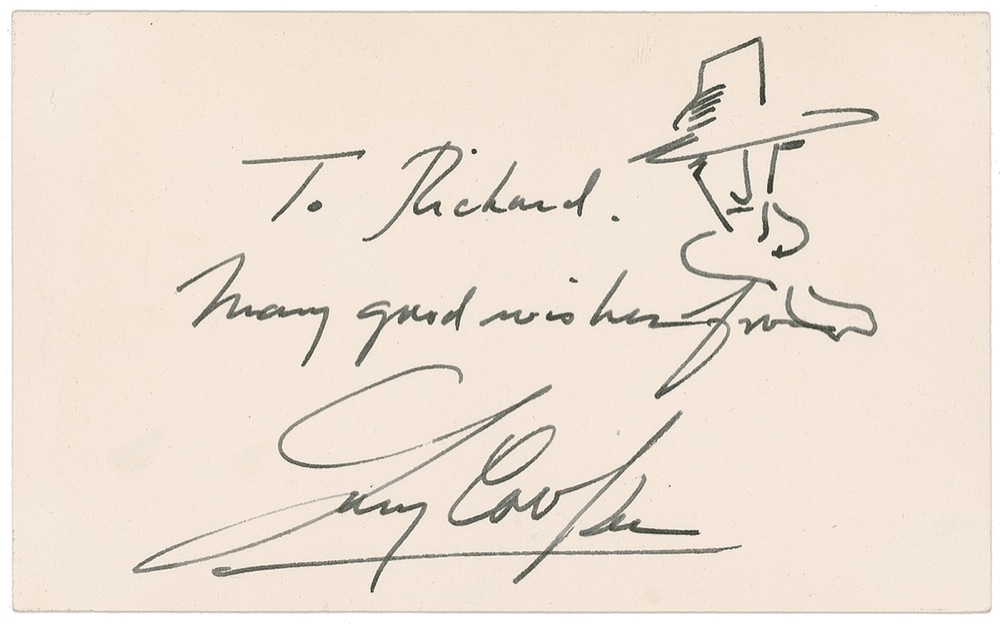 To Richard.
Many good wishes from
Gary Cooper